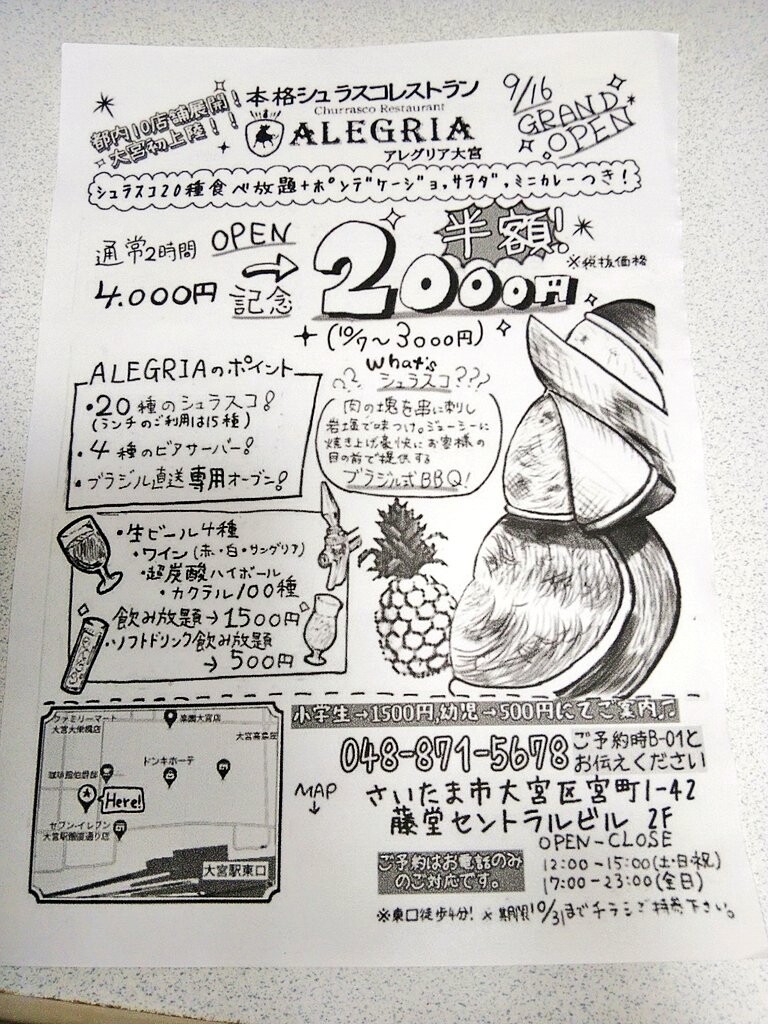 都内10店舗展開！
大宮初上陸！！
本格シュラスコレストラン
Churrasco Restaurant
ALEGRIA
アレグリア大宮
9/16
GRAND
OPEN
シュラスコ20種食べ放題+ポンデケージョ,サラダ,ミニカレーつき!
通常2時間
4.000円
OPEN
記念
半額!
2000円
※税抜価格
(10/7〜3000円)
ALEGRIAのポイント
・20種のシュラスコ!
(ランチのご利用は15種)
・4種のビアサーバー!
・ブラジル直送専用オーブン!
What's
?? シュラスコ???
肉の塊を串に刺し
岩塩で味つけ。ジューシーに
焼き上げ豪快にお客様の
目の前で提供する
ブラジル式BBQ!
・生ビール4種
・ワイン(赤・白・サングリア)
・超炭酸ハイボール
・カクテル100種
飲み放題→1500円
・ソフトドリンク飲み放題
→500円
小学生→1500円,幼児→500円にてご案内♫
048-871-5678
ご予約時B-01と
お伝えください
MAP
↓
さいたま市大宮区宮町1-42
藤堂セントラルビル 2F
OPEN-CLOSE
12:00-15:00(土・日・祝)
17:00-23:00(全日)
ご予約はお電話のみ
のご対応です。
※東口徒歩4分! ※期限10/31までチラシご持参下さい。
ファミリーマート
大宮大栄橋店
楽園大宮店
大宮高島屋
ドンキホーテ
珈琲屋伯爵邸
Here!
セブン-イレブン
大宮駅銀座通り店
大宮駅東口